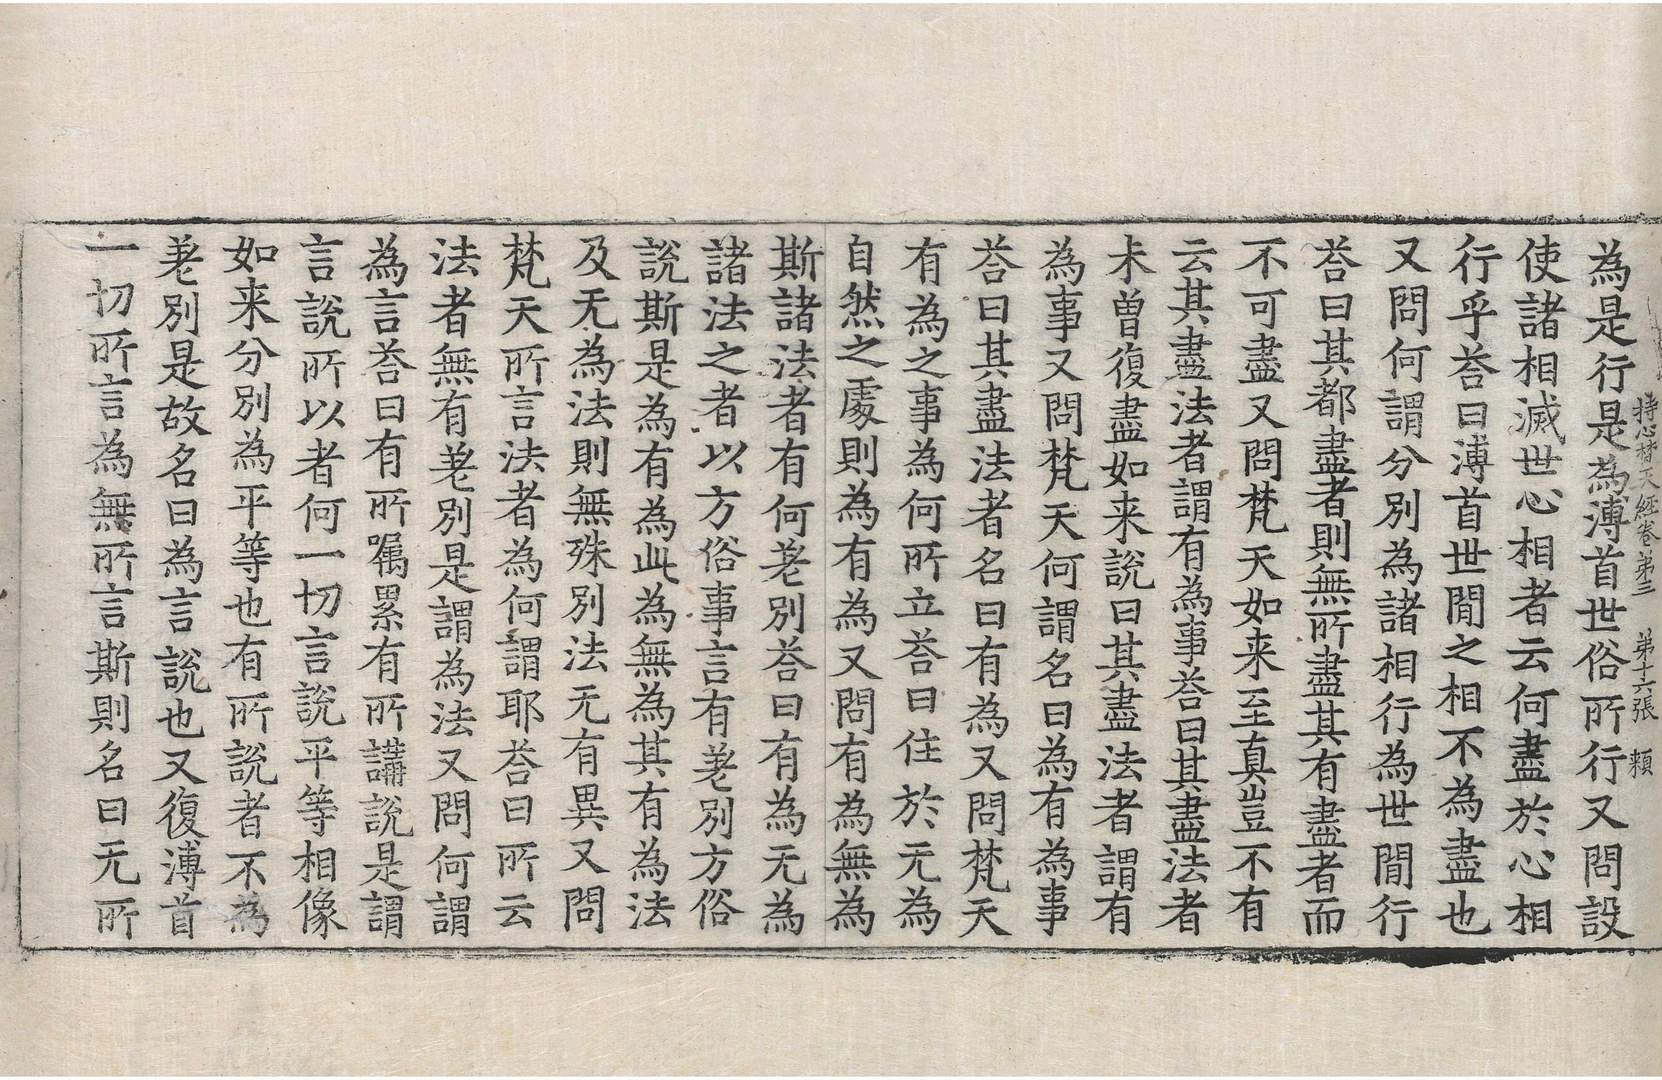 持心梵天經卷第三　第十六張　類
為是行是為溥首世俗所行又問設
使諸相滅世心相者云何盡於心相
行乎荅曰溥首世間之相不為盡也
又問何謂分別為諸相行為世間行
荅曰其都盡者則無所盡其有盡者而
不可盡又問梵天如来至真豈不有
云其盡法者謂有為事荅曰其盡法者
未曽復盡如来說曰其盡法者謂有
為事又問梵天何謂名曰為有為事
荅曰其盡法者名曰有為又問梵天
有為之事為何所立荅曰住於无為
自然之處則為有為又問有為無為
斯諸法者有何差別荅曰有為无為
諸法之者以方俗事言有差別方俗
說斯是為有為此為無為其有為法
及无為法則無殊別法无有異又問
梵天所言法者為何謂耶荅曰所云
法者無有差別是謂為法又問何謂
為言荅曰有所囑累有所講說是謂
言說所以者何一切言說平等相像
如来分別為平等也有所說者不為
差別是故名曰為言說也又復溥首
一切所言為無所言斯則名曰无所